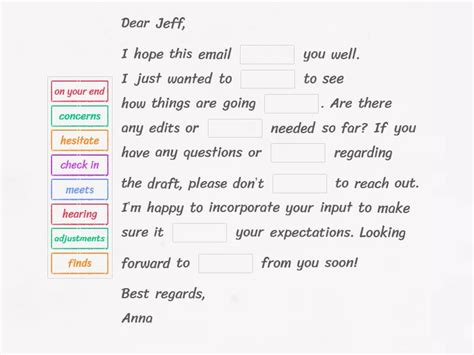 Dear Jeff,
I hope this email you well.
I just wanted to to see
how things are going . Are there
any edits or needed so far? If you
have any questions or regarding
the draft, please don't to reach out.
I'm happy to incorporate your input to make
sure it your expectations. Looking
forward to from you soon!
Best regards,
Anna
on your end
concerns
hesitate
check in
meets
hearing
adjustments
finds